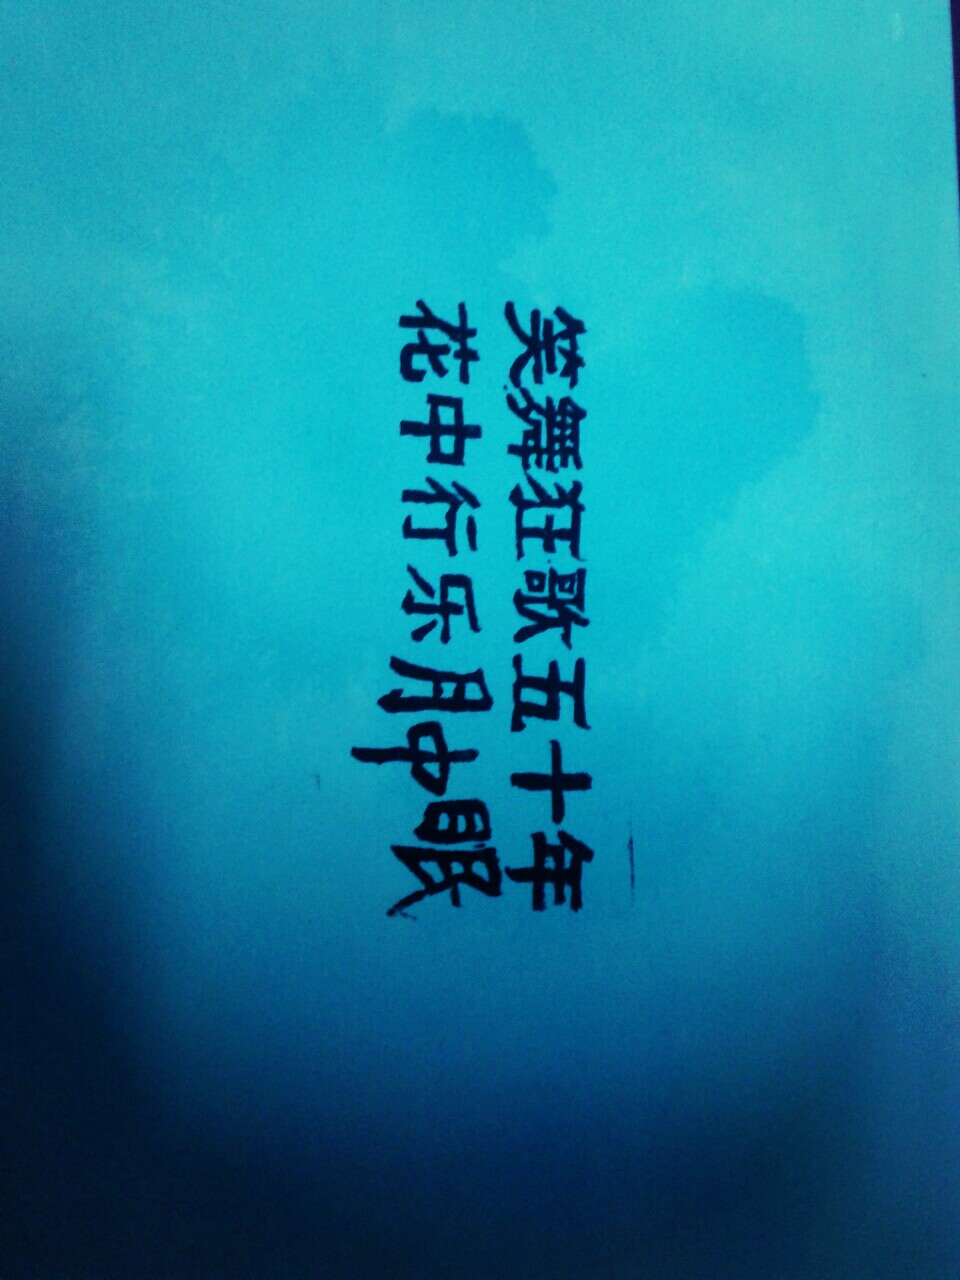 笑舞狂歌五十年
花中行乐月中眠